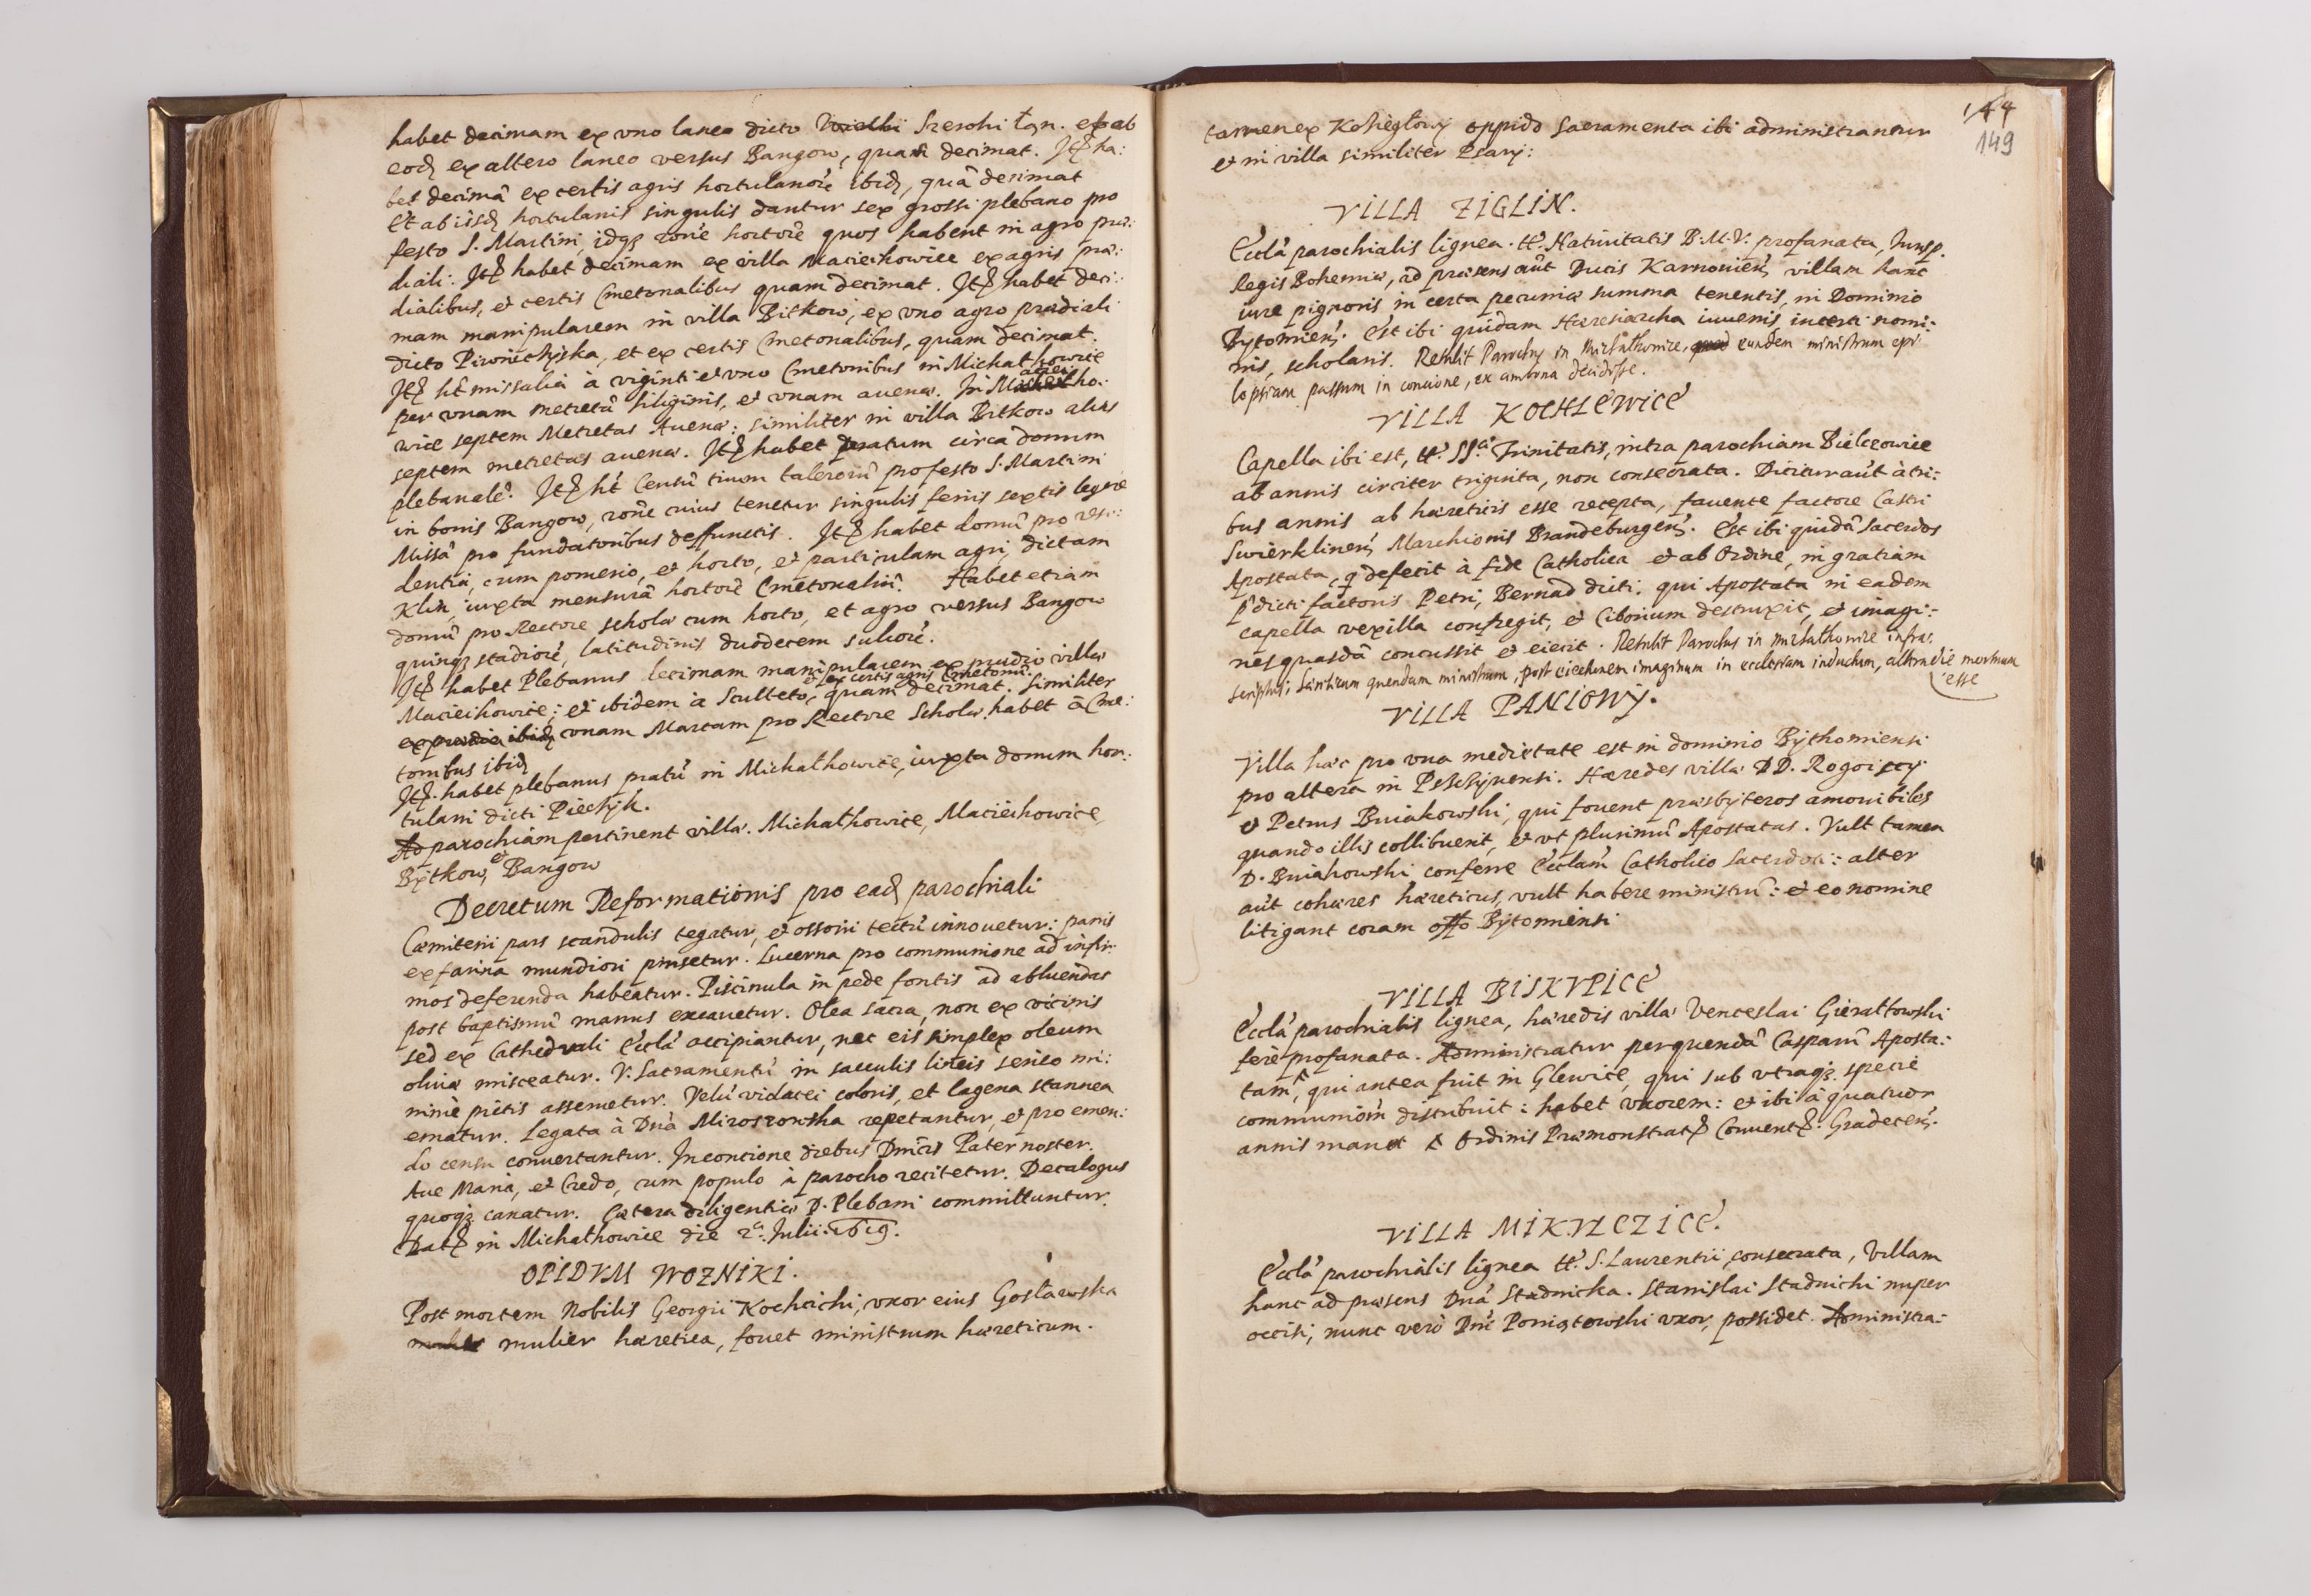 habet decimam ex vno laneo dicto Szeroki łan. et ab
eod ex altero laneo versus Bangow, quam decimat. Itē ha:
bet decimā ex certis agris hortulanorū ibid, quā decimat
Et ab iisd hortulanis singulis dantur sex grossi plebano pro
festo S. Martini, idq; rōne hortorū quos habent in agro præ:
diali: Itē habet decimam ex villa Macieikowice ex agris præ:
dialibus, et certis Cmetonalibus quam decimat. Itē habet deci:
mam manipularem in villa Bitkow, ex vno agro prædiali
dicto Piwnichÿska, et ex certis Cmetonalibus, quam decimat.
Itē hēt missalia à viginti et vno Cmetonibus in Michałkowice
per vnam metretā siliginis, et vnam auenæ. In Macieiko:
wice septem Metretas Auenæ: similiter in villa Bitkow alias
septem metretas auenæ. Itē habet pratum circa domum
plebanalē. Itē hēt Censū trium talerorū pro festo S. Martini
in bonis Bangow, rōne cuius tenetur singulis feriis sextis legere
Missā pro fundatoribus deffunctis. Itē habet domū pro resi:
dentia, cum pomerio, et horto, et particulam agri, dictam
Klin, iuxta mensurā hortorū Cmetonaliū. Habet etiam
domū pro Rectore scholæ cum horto, et agro versus Bangow
quinq; stadiorū, latitudinis duodecem sulcorū.
Itē habet Plebanus decimam manipularem ex prædio villæ
et ex certis agris Cmetonū.
Macieikowice; et ibidem à Sculteto, quam decimat. Similiter
ex prædio ibid vnam Marcam pro Rectore Scholæ habet à Cme:
tonibus ibid
Itē habet plebanus pratū in Michałkowice, iuxta domum hor:
tulani dicti Piechÿk.
Ad parochiam pertinent villæ. Michałkowice, Macieikowice,
Bÿtkow, et Bangow
Decretum Reformationis pro ead parochiali
Cœmiterii pars scandulis tegatur, et ossorii tectū innouetur: panis
ex farina mundiori pinsetur. Lucerna pro communione ad infir:
mos deferenda habeatur. Piscinula in pede fontis ad abluendas
post baptismū manus excauetur. Olea sacra, non ex vicinis
sed ex Cathedrali Ecclā accipiantur, nec eis simplex oleum
oliuæ misceatur. V. Sacramentū in sacculis lineis serico mi:
nimè pictis asseruetur. Velū violacei coloris, et lagena stannea
ematur. Legata à Dnā Miroszowska repetantur, et pro emen:
do censu conuertantur. In concione diebus Dnīcis Pater noster.
Aue Maria, et Credo, cum populo à parocho recitetur. Decalogus
quoq; canatur. Cætera diligentiæ D. Plebani committuntur.
Datē in Michałkowice die 2ª. Julii 1619.
OPIDVM WOZNIKI.
Post mortem Nobilis Georgii Kochcichi, vxor eius Gosławska
mulier hæretica, fouet ministrum hæreticum.
144
149
tamen ex Kozięgłowÿ oppido sacramenta ibi administrantur
et in villa similiter Psarÿ:
VILLA ZIGLIN.
Ecclā parochialis lignea. tt. Natiuitatis B.M.V. profanata, Iurisp.
Regis Bohemiæ, ad præsens aūt Ducis Karnouien, villam hanc
iure pignoris in certa pecuniæ summa tenentis, in Dominio
Bytomien. Est ibi quidam Hæresiarcha iuuenis, incerti nomi:
nis, scholaris. Retulit Parochus in Michałkowice, eundem ministrum epi
lepsiam passum in concione, ex ambona decidisse.
VILLA KOCHLEWICE
Capella ibi est, tt. SS. Trinitatis, intra parochiam Bielczowice
ab annis circiter triginta, non consecrata. Dicitur aūt à tri:
bus annis ab hæreticis esse recepta, fauente factore Castri
Swierklinen Marchionis Brandeburgen. Est ibi quidā sacerdos
Apostata, q defecit à fide Catholica et ab Ordine, in gratiam
p̄dicti factoris Petri, Bernad dicti. qui Apostata in eadem
capella vexilla confregit, et Ciborium destruxit, et imagi:
nes quasdā concussit et eiecit. Retulit Parochus in Michałkowice infra:
scriptus; quendam ministrum, post eiectionem imaginum in ecclesiam inductum, altera die mortuum
esse
VILLA PANIOWY.
Villa hæc pro vna medietate est in dominio Bÿthomiensi
pro altera in Pszczÿnensi. Hæredes villæ DD. Rogoiscÿ
et Petrus Buiakowski, qui fouent præsbÿteros amouibiles
quando illis collibuerit, et vt plurimū Apostatas. Vult tamen
D. Buiakowski conferre Ecclām Catholico sacerdoti: alter
aūt cohæres hæreticus, vult habere ministrū: et eo nomine
litigant coram offo Bÿtomiensi
VILLA BISKVPICE
Ecclā parochialis lignea, hæredis villæ Venceslai Gierałtowski
ferè profanata. Administratur per quendā Casparū Aposta:
tam, qui antea fuit in Glewice, qui sub vtraq; specie
communiōm distribuit: habet vxorem: et ibi à quatuor
annis manet Ordinis Præmonstratē Conuentē. Gradecen.
VILLA MIKVLCZICE.
Ecclā parochialis lignea tt. S. Laurentii, consecrata, Villam
hanc ad præsens Dnā Stadnicka. Stanislai Stadnicki nuper
occisi, nunc verò Dni Poniatowski vxor, possidet. Administra: